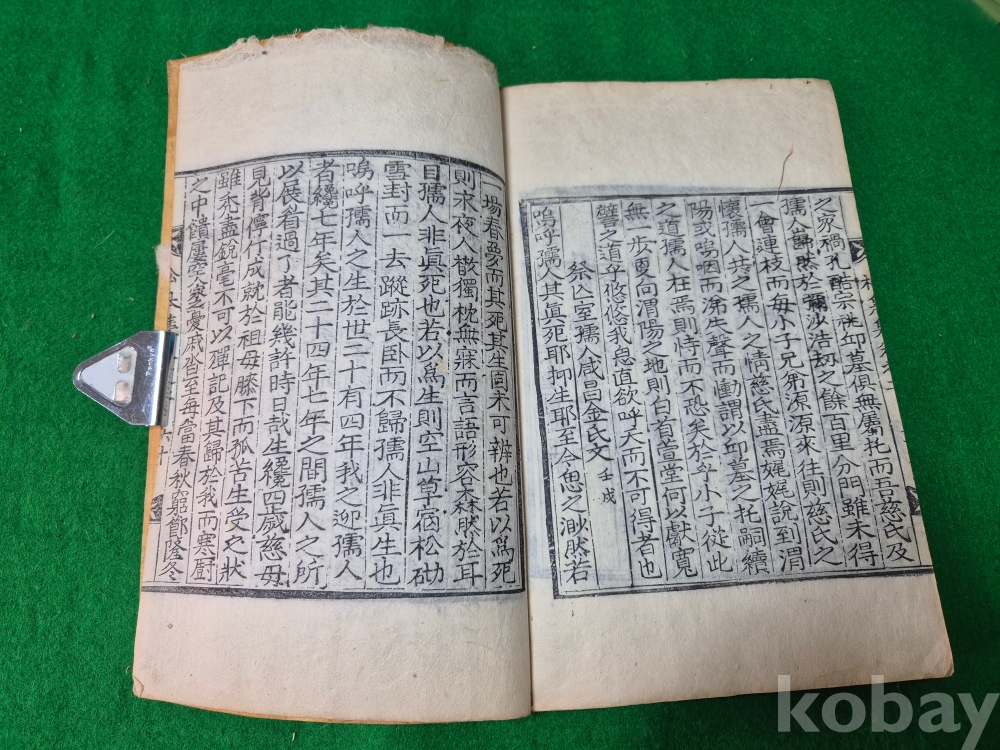 之家禍孔酷宗祧邱墓俱無屬托而吾慈氏及
孺人歸然於沙浩刼之餘百里分門雖未得
一會連枝而每小子兄弟源源來往則慈氏之
懷孺人共之孺人之情慈氏盡焉娓娓說到渭
陽或嗚咽而涕失聲而慟謂以邱墓之托嗣續
之道孺人在焉則恃而不恐矣於乎小子從此
無一步更向渭陽之地則白首萱堂何以獻寬
譬之道乎悠悠我思直欲呼天而不可得者也
祭公室孺人咸昌金氏文 壬戌
嗚呼孺人其眞死耶抑生耶至今思之渺然若
一場春夢而其死其生固未可辨也若以爲死
則求夜人散獨枕無寐而言語形容森然於耳
目孺人非眞死也若以爲生則空山草宿松砌
雪封而一去蹤跡長卧而不歸孺人非眞生也
嗚呼孺人之生於世二十有四年我之迎孺人
者纔七年矣其二十四年七年之間孺人之所
以展眉過了者能幾許時日哉生纔四歲慈母
見背儜仃成就於祖母膝下而孤苦生受之狀
雖禿盡銳毫不可以殫記及其歸於我而寒廚
之中饋屢空塞憂戚備至每當春秋窮節隆冬
kobay